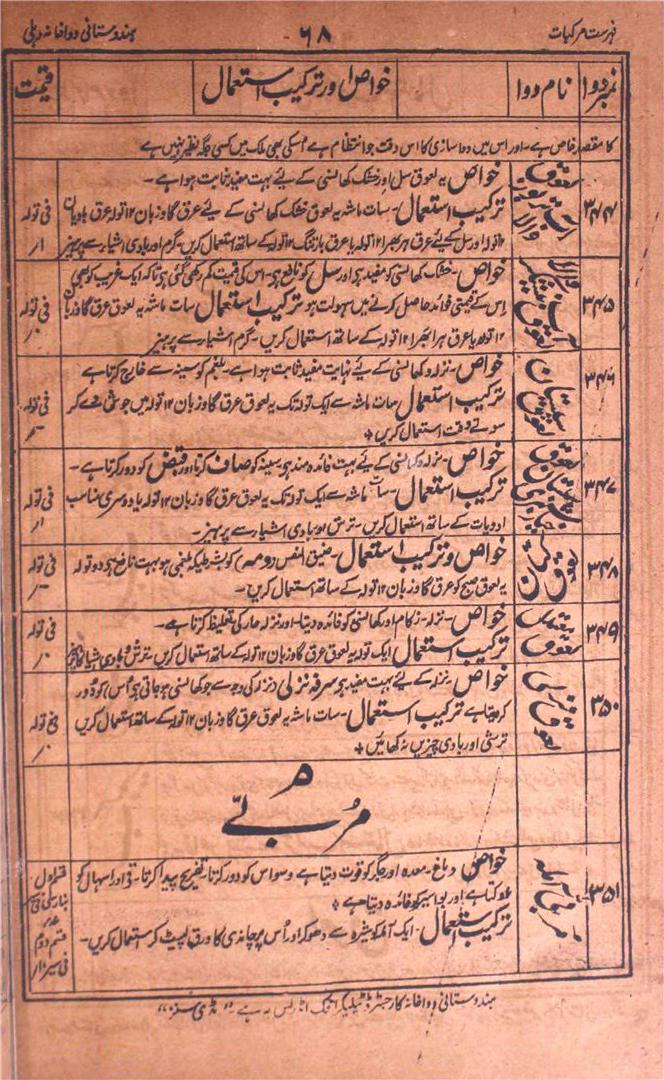 فہرست مرکبات
۶۸
ہندوستانی دواخانہ دہلی
نمبر دوا
نام دوا
خواص اور ترکیب استعمال
قیمت
کا مقصد خاص ہے۔ اور اس میں دوا سازی کا اس وقت جو انتظام ہے اسکی بھی ملک میں کسی جگہ نظیر نہیں ہے
۳۴۴
لعوق
والا
خواص یہ لعوق سل اور خشک کھانسی کے لیے بہت مفید ثابت ہوا ہے۔
ترکیب استعمال۔ سات ماشہ یہ لعوق خشک کھانسی کے لیے عرق گاوزبان ۱۲ تولہ عرق بادیان
۱۲ تولہ اور سل کے لیے عرق ہرا بھرا ۱۲ تولہ یا عرق ۱۲ تولہ کے ساتھ استعمال کریں۔ گرم اور بادی اشیا سے پرہیز
فی تولہ
۱ر
۳۴۵
لعوق
والا
خواص۔ خشک کھانسی کو مفید ہے اور سل کو نافع ہے۔ اس کی قیمت کم رکھی گئی ہے تاکہ ایک غریب کو بھی
اس کے قیمتی فوائد حاصل کرنے میں سہولت ہو ترکیب استعمال سات ماشہ یہ لعوق عرق گاوزبان
۱۲ تولہ یا عرق ہرا بھرا ۱۲ تولہ کے ساتھ استعمال کریں۔ گرم اشیا سے پرہیز
فی تولہ
۳۴۶
لعوق سپستان
خواص۔ نزلہ و کھانسی کے لیے نہایت مفید ثابت ہوا ہے۔ بلغم کو سینہ سے خارج کرتا ہے
ترکیب استعمال سات ماشہ سے ایک تولہ تک یہ لعوق عرق گاوزبان ۱۲ تولہ میں جوش دے کر
سوتے وقت استعمال کریں
فی تولہ
۳۴۷
لعوق سپستان خیار شنبری
خواص۔ نزلہ و کھانسی کے لیے بہت فائدہ مند ہے سینہ کو صاف کرتا اور قبض کو دور کرتا ہے۔
ترکیب استعمال۔ سات ماشہ سے ایک تولہ تک یہ لعوق عرق گاوزبان ۱۲ تولہ یا دوسری مناسب
ادویات کے ساتھ استعمال کریں۔ ترش اور بادی اشیا سے پرہیز۔
فی تولہ
۱ر
۳۴۸
لعوق کتان
خواص و ترکیب استعمال۔ ضیق النفس دومہ کو بشرطیکہ بلغمی ہو بہت نافع ہے دو تولہ
یہ لعوق صبح کو عرق گاوزبان ۱۲ تولہ کے ساتھ استعمال کریں۔
فی تولہ
۳۴۹
لعوق معتدل
خواص۔ نزلہ۔ زکام اور کھانسی کو فائدہ دیتا۔ اور نزلہ حار کی تغلیظ کرتا ہے۔
ترکیب استعمال ایک تولہ یہ لعوق عرق گاوزبان ۱۲ تولہ کے ساتھ استعمال کریں۔ ترش و بادی اشیا
فی تولہ
۳۵۰
لعوق نزلی
خواص۔ نزلہ کے لیے بہت مفید ہے سرفہ نزلی دنزلہ کی وجہ سے جو کھانسی ہو جاتی ہے اس) کو دور
کر دیتا ہے ترکیب استعمال۔ سات ماشہ یہ لعوق عرق گاوزبان ۱۲ تولہ کے ساتھ استعمال کریں
ترشی اور بادی چیزیں نہ کھائیں
فی تولہ
م
مُربّے
۳۵۱
مربی آملہ
خواص دماغ۔ معدہ اور جگر کو قوت دیتا ہے وسواس کو دور کرتا۔ تفریح پیدا کرتا۔ قے اور اسہال کو
روکتا ہے اور بواسیر کو فائدہ دیتا ہے
ترکیب استعمال۔ ایک آملہ کو شیرہ سے دھو کر اور اُس پر چاندی کا ورق لپیٹ کر استعمال کریں۔
قسم اول
بنارسی فی سیر
قسم دوم
فی سیر
ہندوستانی دواخانہ کا رجسٹرڈ ٹیلیگرافک اڈریس یہ ہے۔ "مڈی سنز"